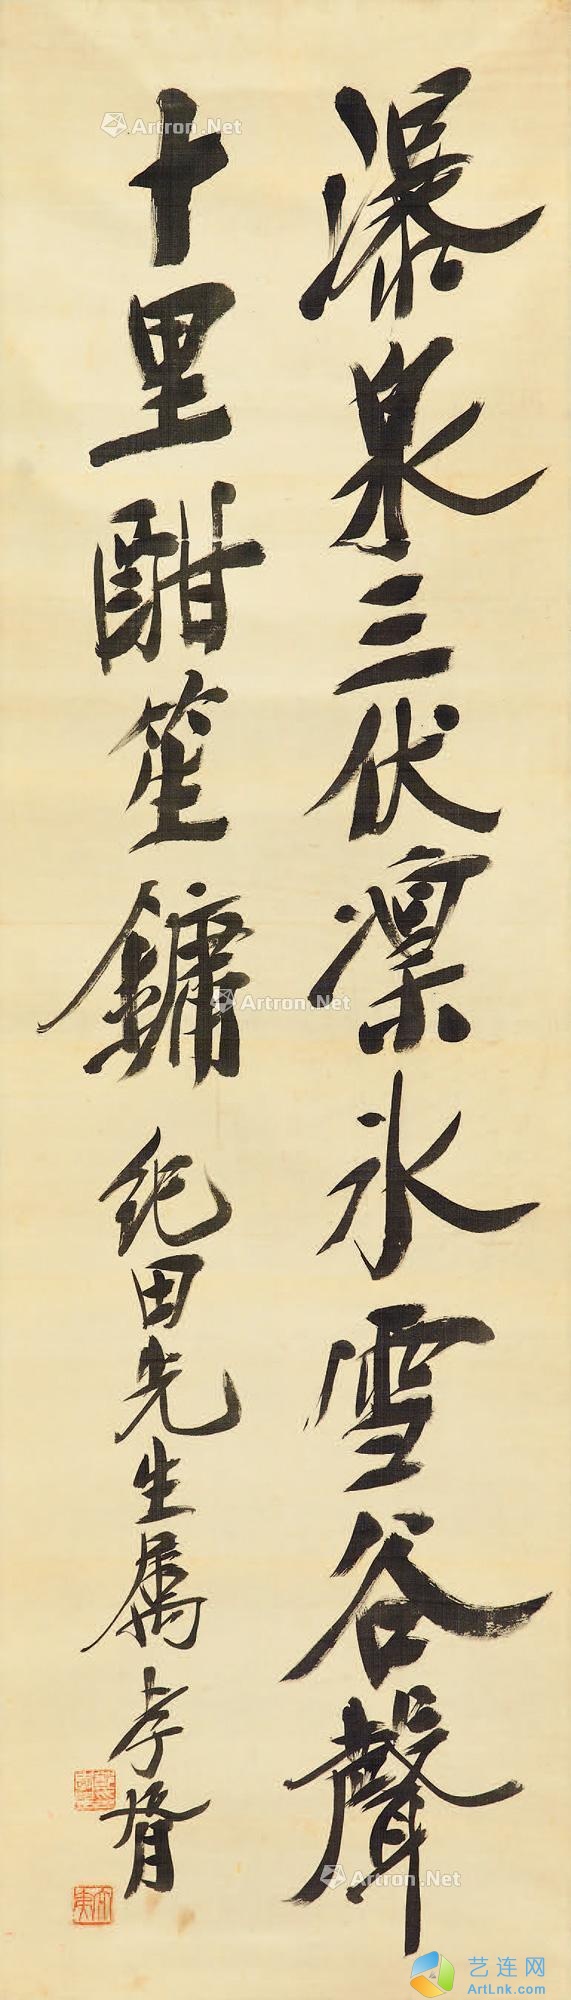 瀑泉三伏凜冰雪谷聲
十里酣笙鏞
纪田先生属 孝胥
Artron.Net
Artron.Net
Artron.Net
艺连网
ArtLnk.com